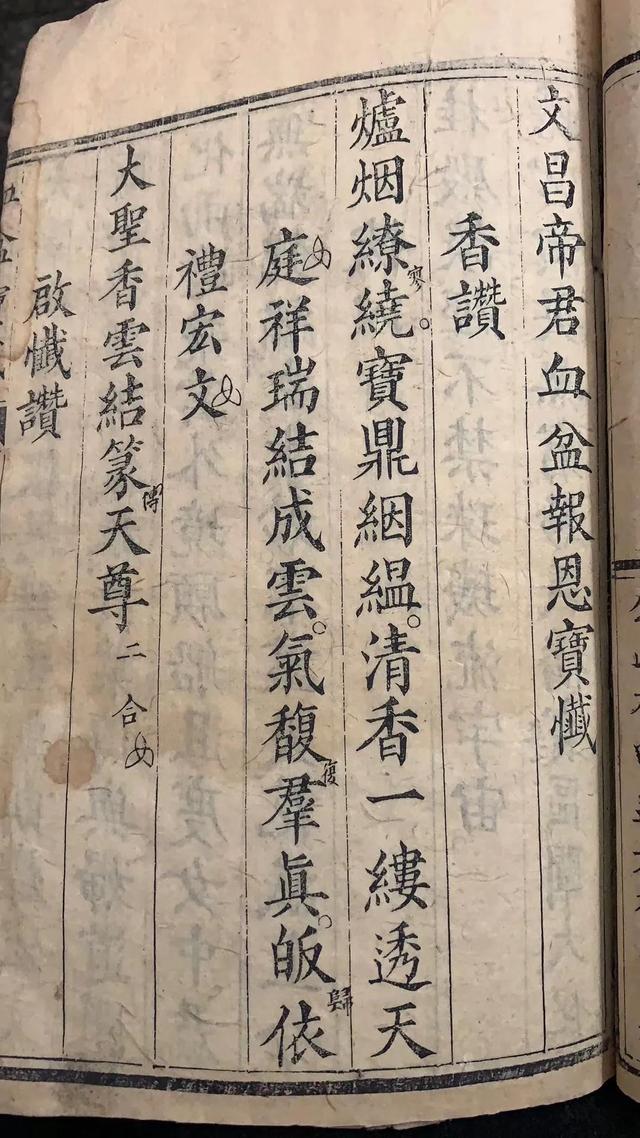 文昌帝君血盆報恩寶懺
香讚
爐烟繚寥繞。寶鼎絪縕。清香一縷透天
庭祥瑞結成雲。氣馥復羣眞。皈歸依
禮宏文
大聖香雲結篆傳天尊二合
啟懺讚